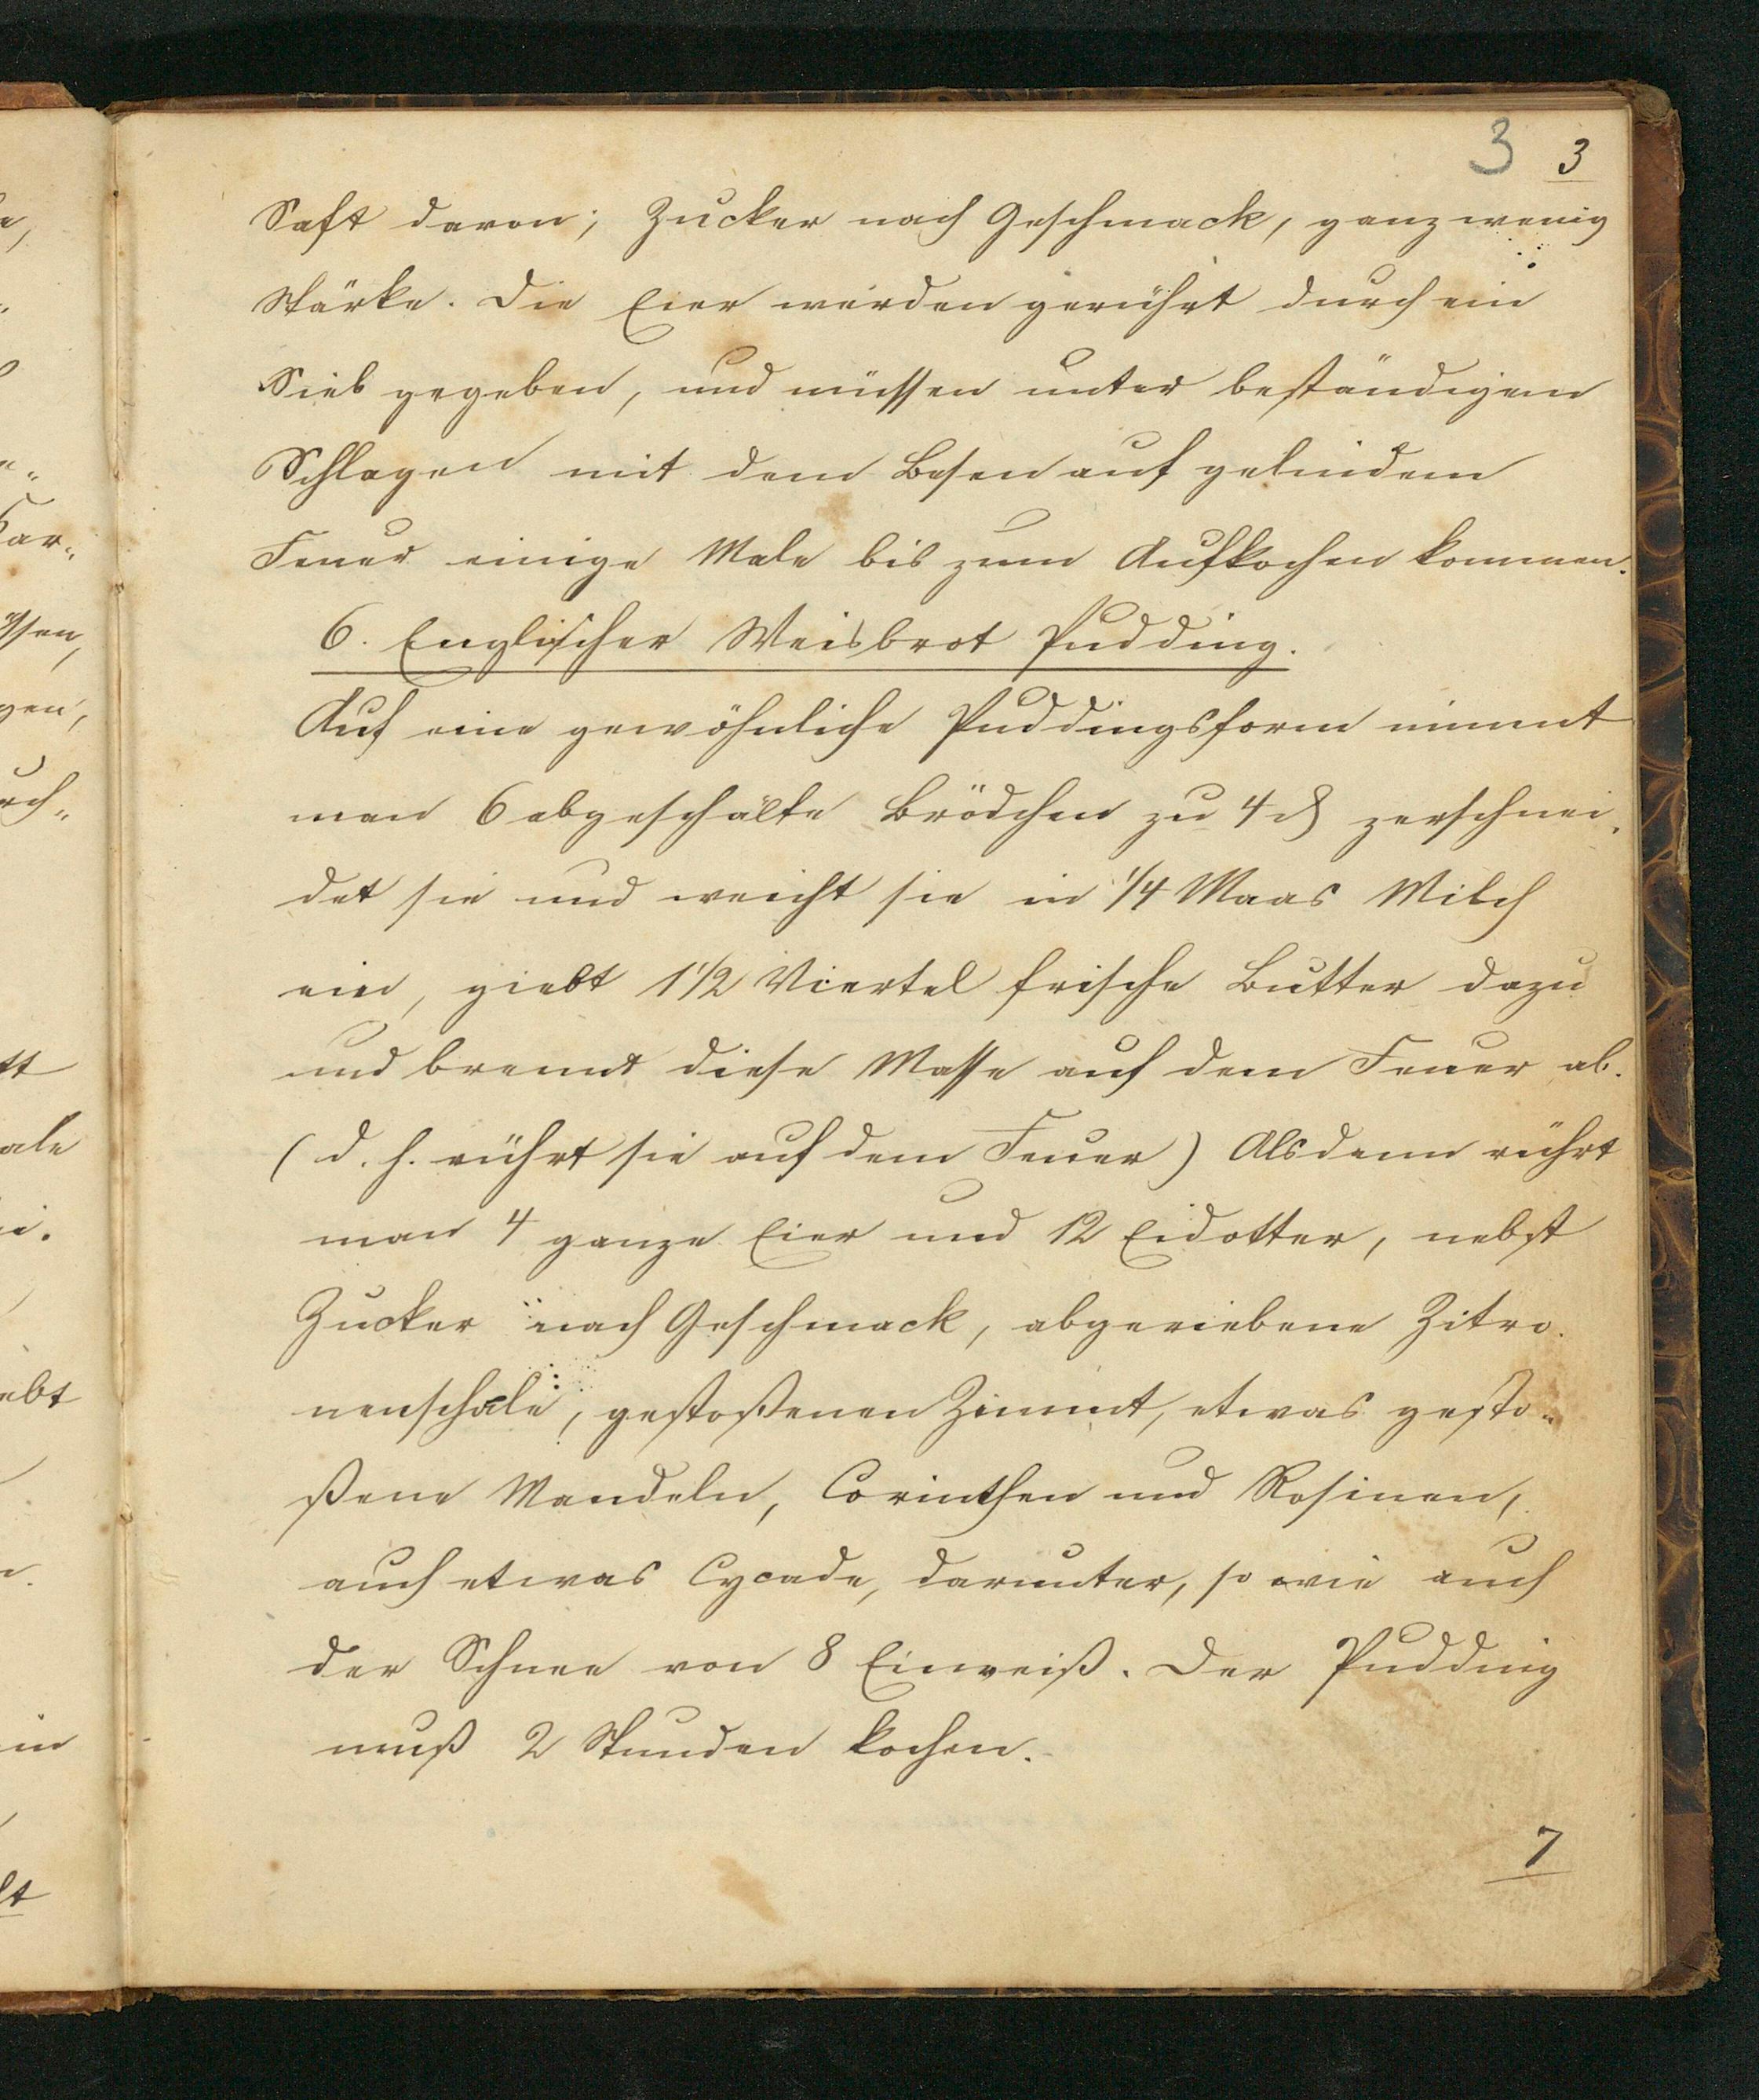 3 3
Saft davon; Zucker nach Geschmack, ganz wenig
Stärke. Die Eier werden gerührt durch ein
Sieb gegeben, und müssen unter beständigem
Schlagen mit dem Besen auf gelindem
Feuer einige Male bis zum Aufkochen kommen.
6. Englischer Weisbrot Pudding.
Auf eine gewöhnliche Puddingsform nimmt
man 6 abgeschälte Brödchen zu 4 ₰ zerschnei-
det sie und weicht sie in 1/4 Maas Milch
ein, giebt 1 1/2 Viertel frische Butter dazu
und brennt diese Masse auf dem Feuer ab.
(d. h. rührt sie auf dem Feuer) Alsdann rührt
man 4 ganze Eier und 12 Eidotter, nebst
Zucker nach Geschmack, abgeriebene Zitro-
nenschale, gestoßenen Zimmt, etwas gesto-
ßene Mandeln, Corinthen und Rosinen,
auch etwas Cycade, darunter, so wie auch
der Schnee von 8 Eiweiß. Der Pudding
muß 2 Stunden kochen.
7